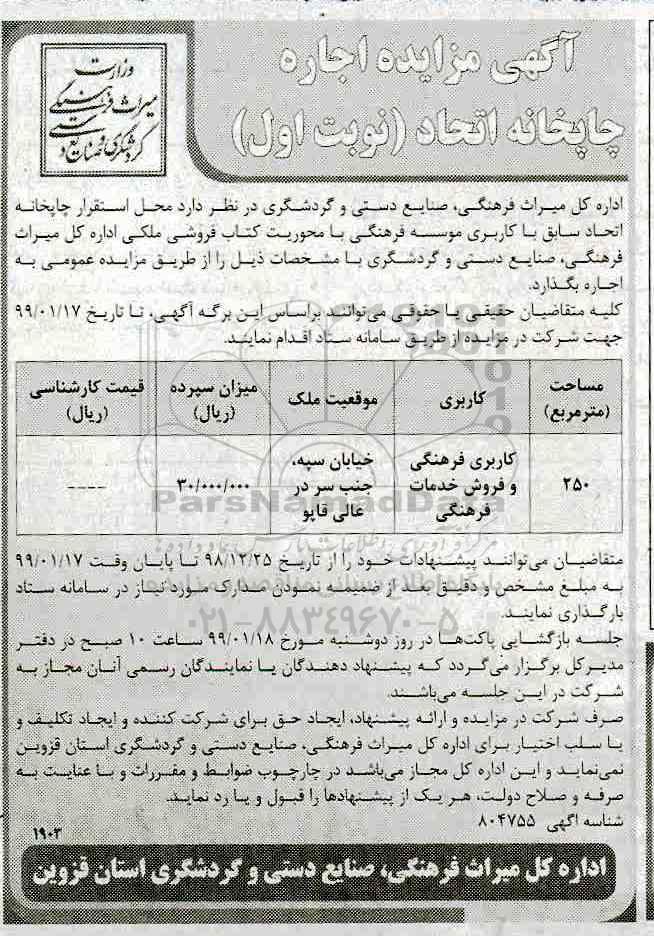 آگهی مزایده اجاره
چاپخانه اتحاد (نوبت اول)
وزارت
میراث فرهنگی
گردشگری و صنایع دستی
اداره کل میراث فرهنگی، صنایع دستی و گردشگری در نظر دارد محل استقرار چاپخانه
اتحاد سابق با کاربری موسسه فرهنگی با محوریت کتاب فروشی ملکی اداره کل میراث
فرهنگی، صنایع دستی و گردشگری با مشخصات ذیل را از طریق مزایده عمومی به
اجاره بگذارد.
کلیه متقاضیان حقیقی یا حقوقی می‌توانند براساس این برگه آگهی، تا تاریخ ۹۹/۰۱/۱۷
جهت شرکت در مزایده از طریق سامانه ستاد اقدام نمایند.
مساحت (مترمربع) کاربری موقعیت ملک میزان سپرده (ریال) قیمت کارشناسی (ریال)
۲۵۰ کاربری فرهنگی و فروش خدمات فرهنگی خیابان سپه، جنب سر در عالی قاپو ۳۰/۰۰۰/۰۰۰ ----
متقاضیان می‌توانند پیشنهادات خود را از تاریخ ۹۸/۱۲/۲۵ تا پایان وقت ۹۹/۰۱/۱۷
به مبلغ مشخص و دقیق بعد از ضمیمه نمودن مدارک مورد نیاز در سامانه ستاد
بارگذاری نمایند.
جلسه بازگشایی پاکت‌ها در روز دوشنبه مورخ ۹۹/۰۱/۱۸ ساعت ۱۰ صبح در دفتر
مدیرکل برگزار می‌گردد که پیشنهاد دهندگان یا نمایندگان رسمی آنان مجاز به
شرکت در این جلسه می‌باشند.
صرف شرکت در مزایده و ارائه پیشنهاد، ایجاد حق برای شرکت کننده و ایجاد تکلیف و
یا سلب اختیار برای اداره کل میراث فرهنگی، صنایع دستی و گردشگری استان قزوین
نمی‌نماید و این اداره کل مجاز می‌باشد در چارچوب ضوابط و مقررات و با عنایت به
صرفه و صلاح دولت، هر یک از پیشنهادها را قبول و یا رد نماید.
شناسه آگهی ۸۰۴۷۵۵
۱۹۰۳
اداره کل میراث فرهنگی، صنایع دستی و گردشگری استان قزوین
ParsNamadData
۰۲۱-۸۸۳۴۹۶۷۰-۵